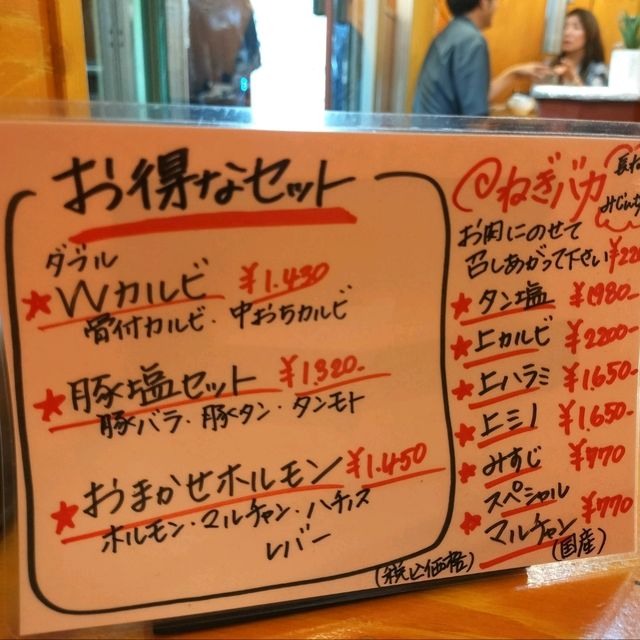 お得なセット
ダブル
★Wカルビ ¥1.430
骨付カルビ・中おちカルビ
★豚塩セット ¥1.320-
豚バラ・豚タン・タンモト
★おまかせホルモン ¥1.450
ホルモン・マルチャン・ハチノス
レバー
(税込価格)
@ねぎバカ
お肉にのせて
召しあがって下さい ¥22
★タン塩 ¥1980-
★上カルビ ¥2200-
★上ハラミ ¥1.650-
★上ミノ ¥1.650-
★みすじ ¥770
★スペシャル
マルチャン ¥770
(国産)